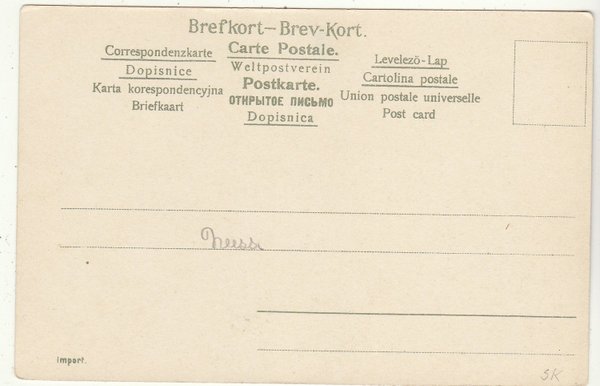 Brefkort—Brev-Kort.
Correspondenzkarte
Dopisnice
Karta korespondencyjna
Briefkaart
Carte Postale.
Weltpostverein
Postkarte.
ОТКРЫТОЕ ПИСЬМО
Dopisnica
Levelező-Lap
Cartolina postale
Union postale universelle
Post card
import.
SK